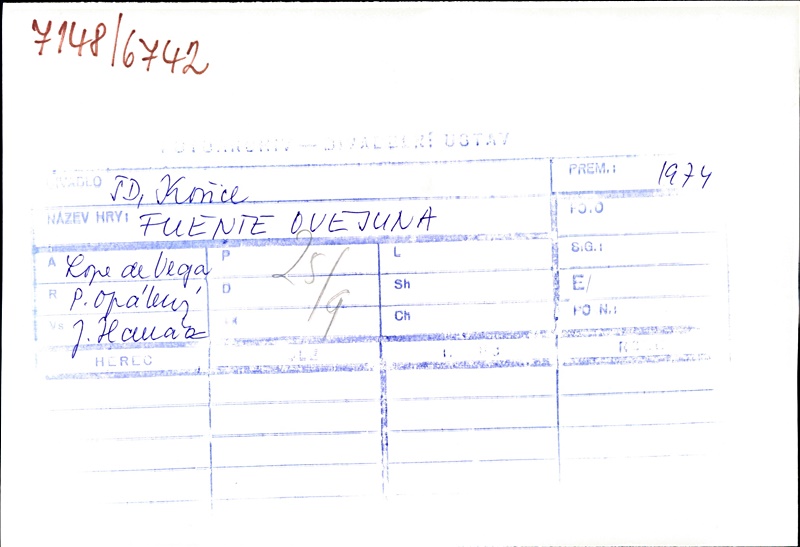 7148/6742
FOTOARCHIV — DIVADELNÍ ÚSTAV
DIVADLO ŠD, Košice PREM.: 1974
NÁZEV HRY: FUENTE OVEJUNA FOTO
A Lope de Vega P L SIG.:
R P. Opálený D Sh E/
Vs J. Hanák Ch FO N.:
25/9
HEREC